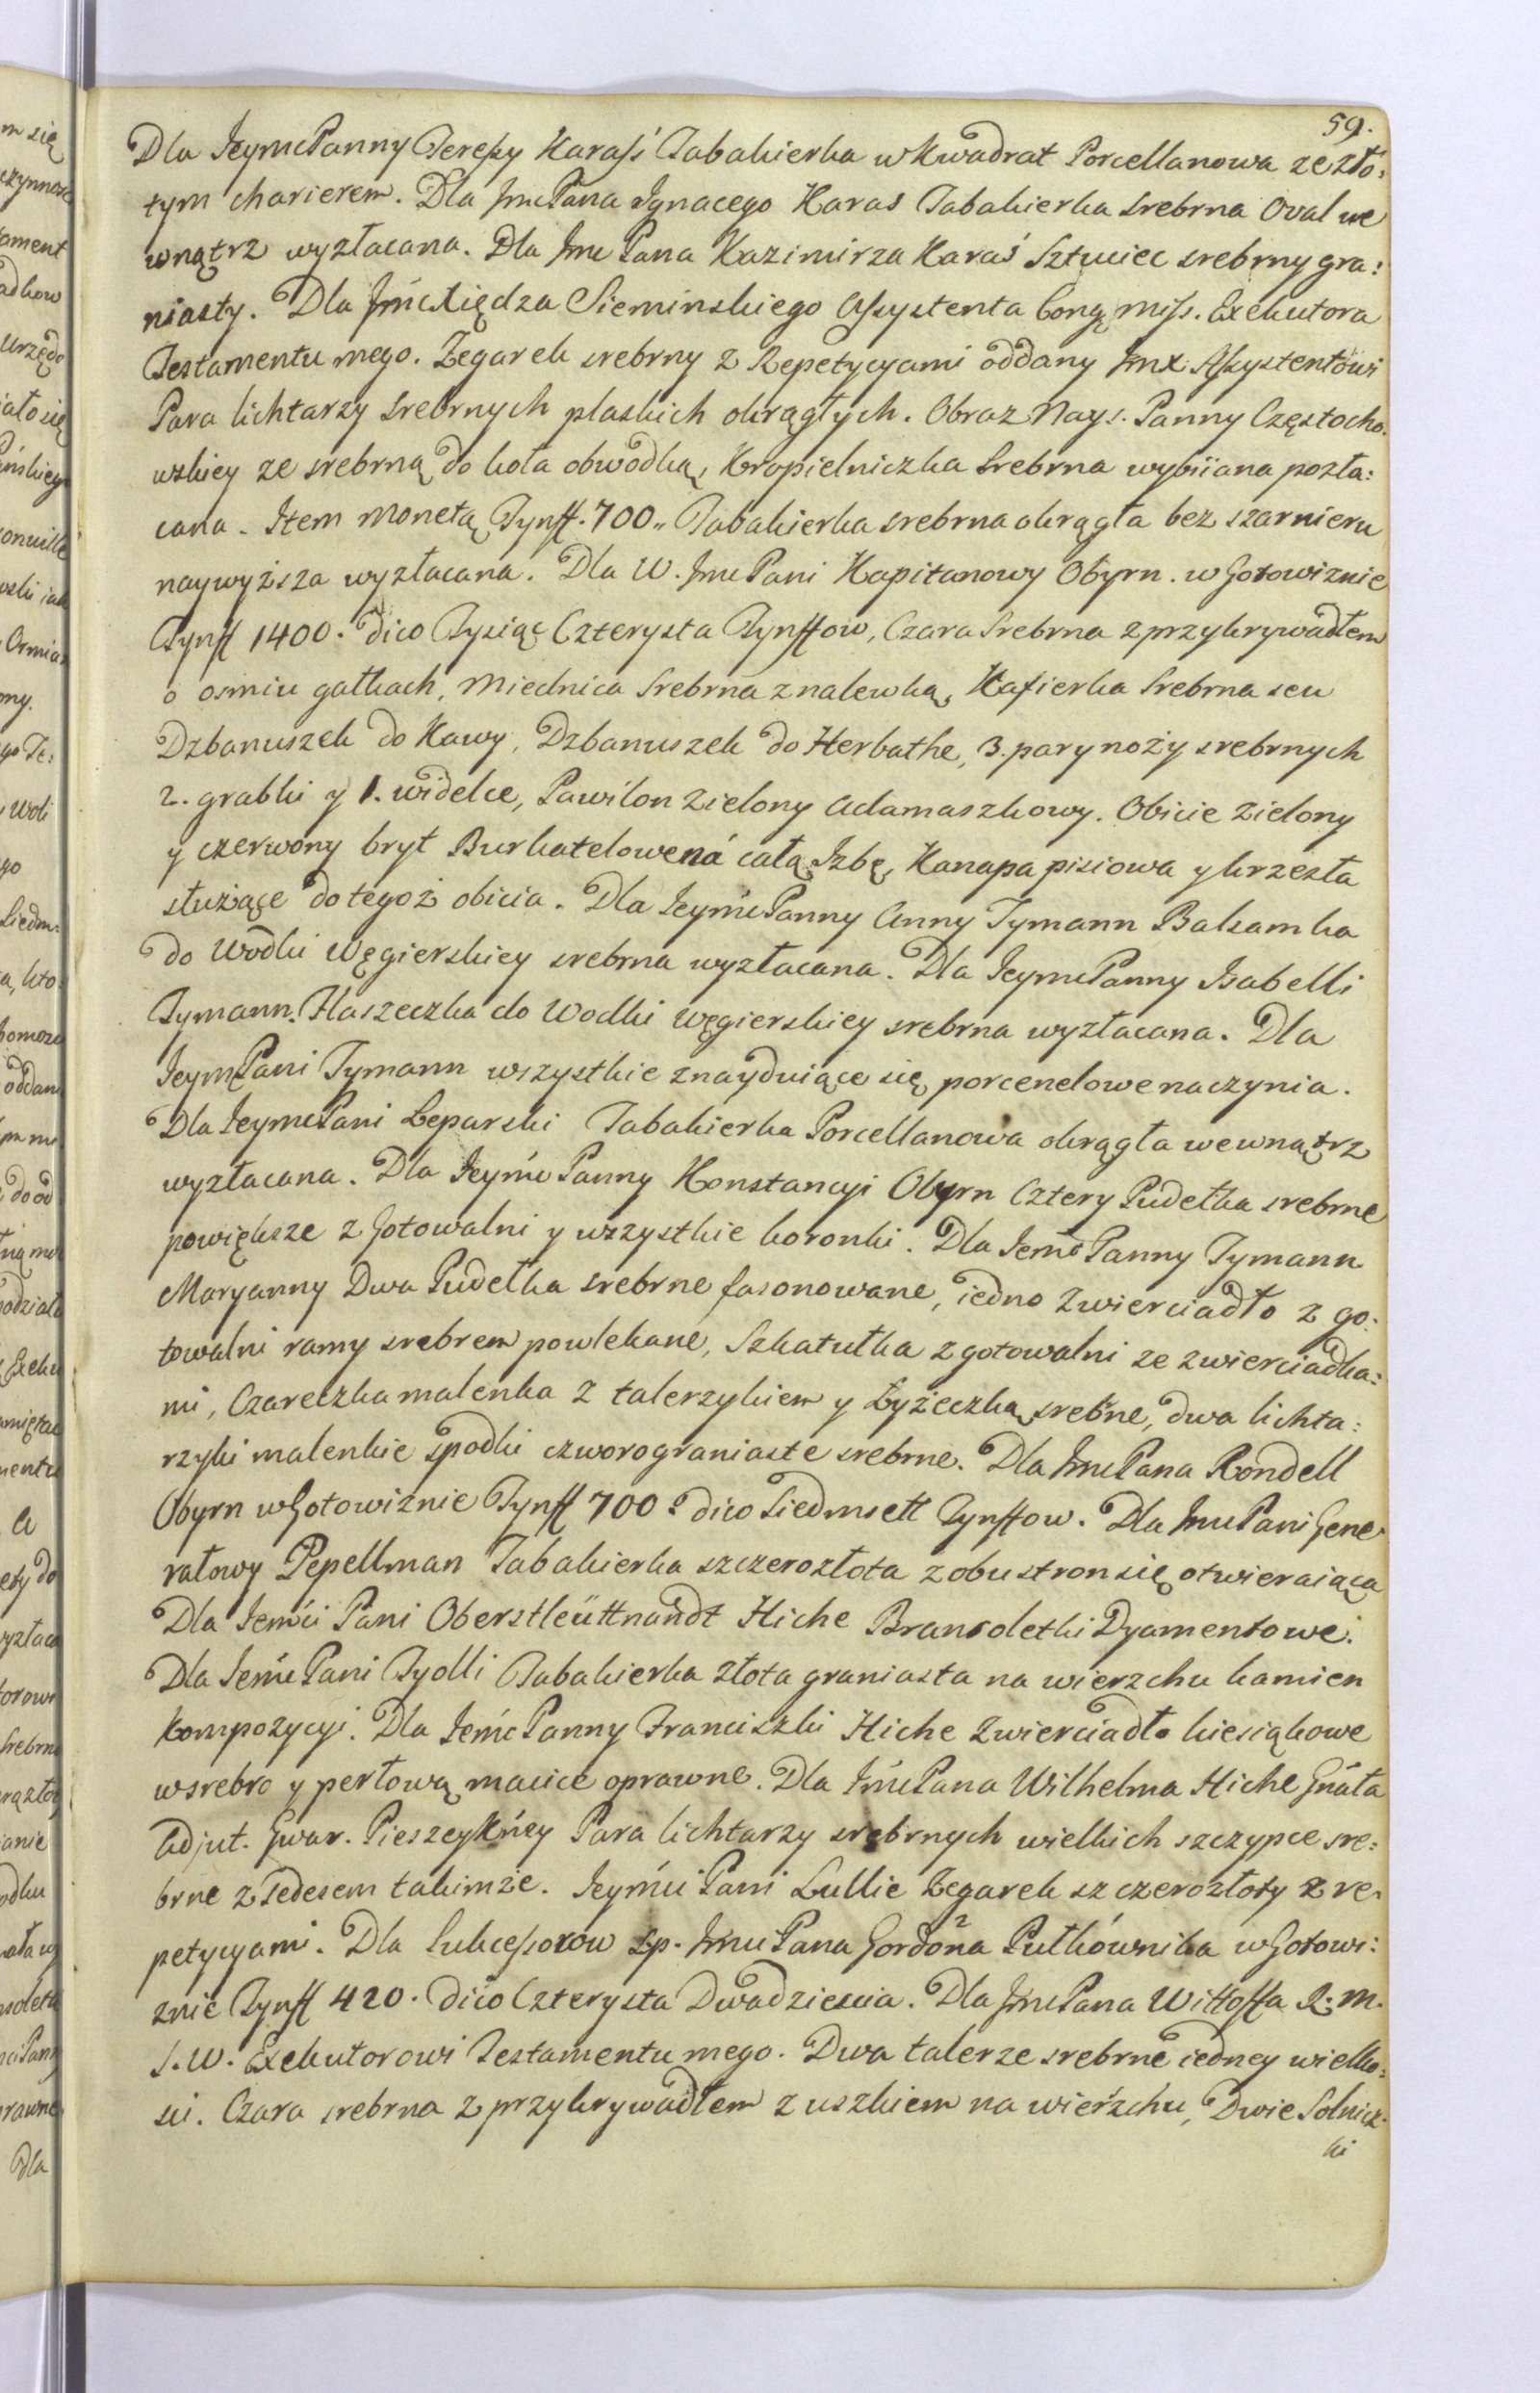 59.
Dla JeymcPanny Teressy Karaś Tabakierka w Kwadrat Porcellanowa ze zło:
tym charierem. Dla JmcPana Jgnacego Karas Tabakierka Srebrna Oval we
wnątrz wyzłacana. Dla Jmc Pana Kazimirza Karaś Sztuciec srebrny gra:
niasty. Dla JmcXiędza Sieminskiego Assystenta Cong. Miss. Exekutora
Testamentu mego. Zegarek srebrny z Repetycyami oddany JmX Assystentowi
Para lichtarzy Srebrnych plaskich okrągłych. Obraz Nays. Panny Częstocho.
wskiey ze srebrną do koła obwodką, Kropielniczka Srebrna wybiiana pozła:
cana. Item Monetą Tynff. 700„ Tabakierka srebrna okrągła bez szarnieru
naywyższa wyzłacana. Dla W. Jmc Pani Kapitanowy Obyrn. w Gotowiznie
Tynff 1400. dico Tysiąc Czterysta Tynffow, Czara Srebrna z przykrywadłem
o osmiu gałkach, Miednica Srebrna z nalewką, Kafierka Srebrna seu
Dzbanuszek do Kawy, Dzbanuszek do Herbathe, 3. pary noży srebrnych
2. grabki y 1. widelce, Pawilon Zielony Adamaszkowy. Obicie Zielony
y czerwony bryt Burkatelowe ná całą Jzbę, Kanapa pisiowa y krzesła
służące do tegoż obicia. Dla JeymcPanny Anny Tymann Balsamka
do Wodki Węgierskiey srebrna wyzłacana. Dla JeymcPanny Isabelli
Tymann. Flaszeczka do Wodki węgierskiey srebrna wyzłacana. Dla
JeymcPani Tymann wszystkie znayduiące się porcenelowe naczynia.
Dla JeymcPani Leparski Tabakierka Porcellanowa okrągła wewnątrz
wyzłacana. Dla Jeymc Panny Konstancyi Obyrn Cztery Pudełka srebrne
powiększe z Gotowalni y wszystkie koronki. Dla Jemc Panny Tymann
Maryanny Dwa Pudełka srebrne fasonowane, iedno Zwierciadło z go:
towalni ramy srebrem powlekane, Szkatułka z gotowalni ze zwierciadka:
mi, Czareczka malenka z talerzykiem y Łyżeczką srebrne, dwa lichta:
rzyki malenkie spodki czworograniaste srebrne. Dla JmcPana Rondell
Obyrn w Gotowiznie Tynff 700. dico Siedmsett Tynffow. Dla JmcPani Gene
rałowy Pepellman Tabakierka szczerozłota z obu stron się otwieraiąca
Dla Jemci Pani Oberstleüttnandt Hiche Bransoletki Dyamentowe.
Dla JemcPani Tyolli Tabakierka Złota graniasta na wierzchu kamien
Kompozycyi. Dla JemcPanny Franciszki Hiche Zwierciadło kiesiąkowe
w srebro y perłową macice oprawne. Dla JmcPana Wilhelma Hiche Gnáła
Adjut. Gwar. Pieszey Kney Para lichtarzy srebrnych wielkich szczypce sre:
brne z Sedesem takimże. Jeymci Pani Lullie Zegarek szczerozłoty z re
petycyami. Dla Sukcessorow Sp. Jmci Pana Gordona Pułkównika w Gotowi:
znie Tynff 420. dico Czterysta Dwadziescia. Dla JmcPana Wittoffa R: M.
S. W. Exekutorowi Testamentu mego. Dwa talerze srebrne iedney wielko:
sci. Czara srebrna z przykrywadłem z uszkiem na wierzchu, Dwie Solnicz.
ki